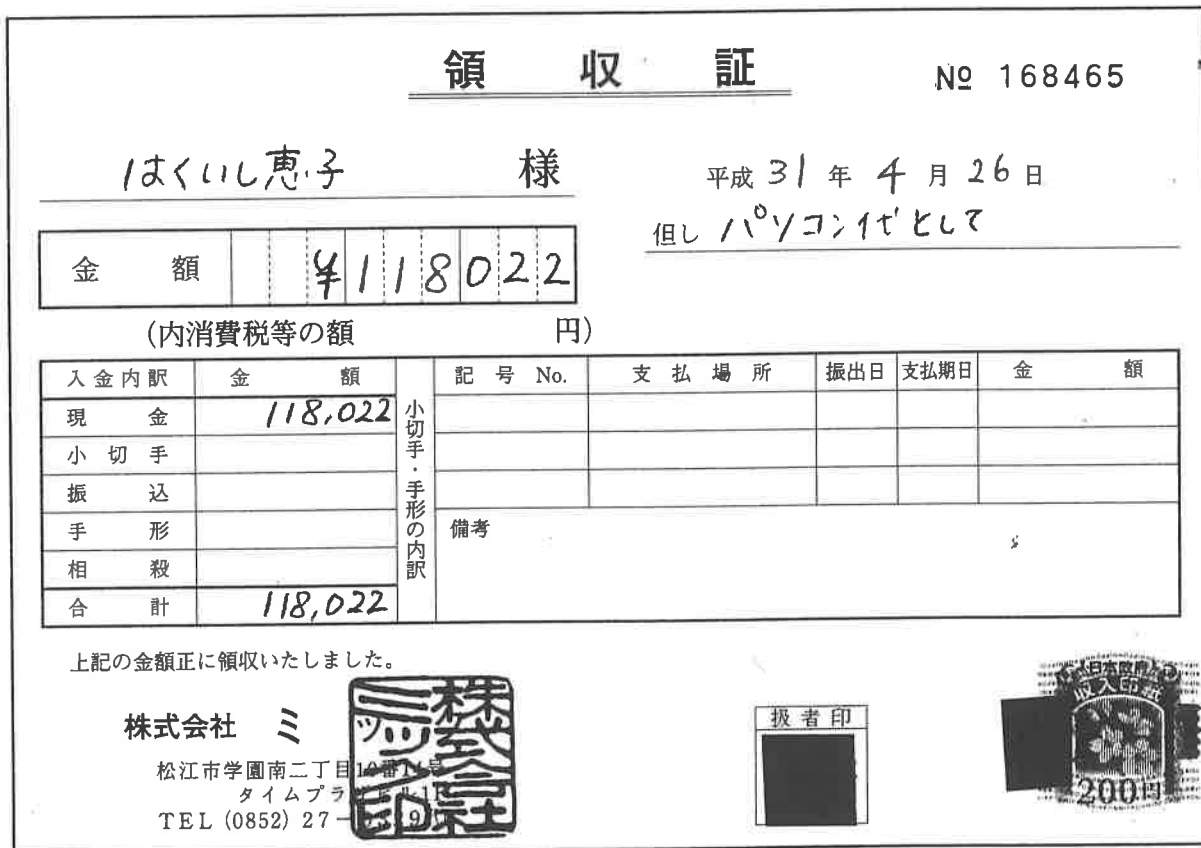 領収証
№ 168465
はくいし恵子 様
平成 31 年 4 月 26 日
但し パソコン代として
金額 ¥118022
(内消費税等の額 円)
入金内訳 金額
現金 118,022
小切手
振込
手形
相殺
合計 118,022
小切手・手形の内訳
記号 No. 支払場所 振出日 支払期日 金額
備考
上記の金額正に領収いたしました。
株式会社 ミ
松江市学園南二丁目
タイムプラ
TEL (0852) 27-
株式会社ミツ印
扱者印
日本政府
収入印紙
200円